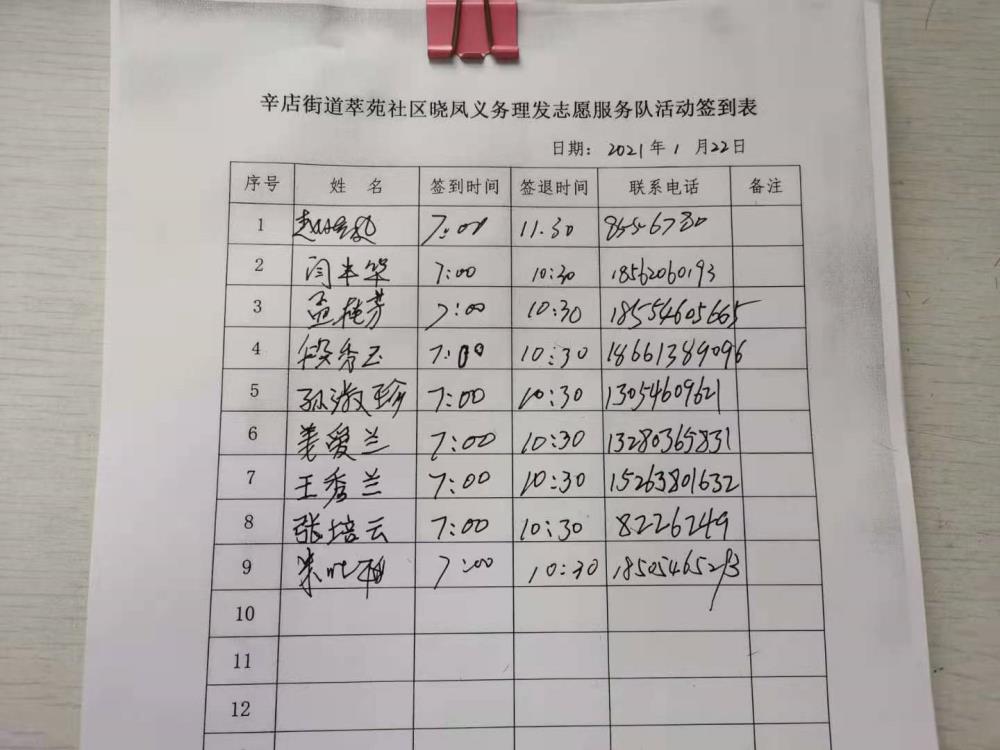 辛店街道萃苑社区晓凤义务理发志愿服务队活动签到表
日期: 2021年1月22日
序号 姓 名 签到时间 签退时间 联系电话 备注
1 7:00 11.30 8556780
2 闫丰华 7:00 10:30 18562060193
3 孟桂芳 7:00 10:30 18554605665
4 段秀玉 7:00 10:30 18661389096
5 孙淑珍 7:00 10:30 13054609621
6 姜爱兰 7:00 10:30 13280365831
7 王秀兰 7:00 10:30 15263801632
8 张培云 7:00 10:30 8226249
9 7:00 10:30
10
11
12